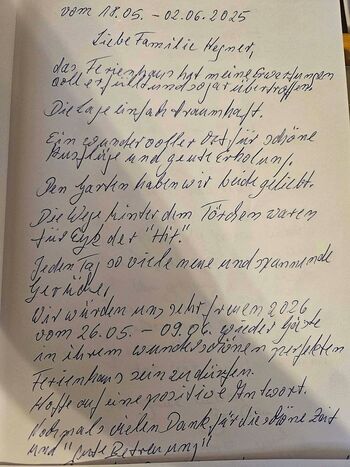 vom 18.05. - 02.06.2025
Liebe Familie Hegner,
das Ferienhaus hat meine Erwartungen
voll erfüllt und sogar übertroffen.
Die Lage einfach traumhaft.
Ein wundervoller Ort für schöne
Ausflüge und gute Erholung.
Den Garten haben wir beide geliebt.
Die Wege hinter dem Törchen waren
für der "Hit".
Jeden Tag so viele neue und spannende
Gerüche.
Wir würden uns sehr freuen 2026
vom 26.05. - 09.06. wieder Gäste
in ihrem wunderschönen perfekten
Ferienhaus sein zu dürfen.
Hoffe auf eine positive Antwort.
Nochmals vielen Dank für die schöne Zeit
und "gute Betreuung"